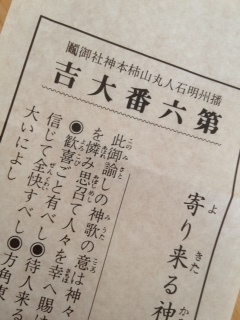 播州明石人丸山柿本神社御鬮
第六番大吉
寄り来る神
此御諭しの神歌の意は神々
を憐み思召て人々を幸へ賜は
◉歓喜ごと有べし◉待人来る
信じて全快すべし◉方角東
大いによし